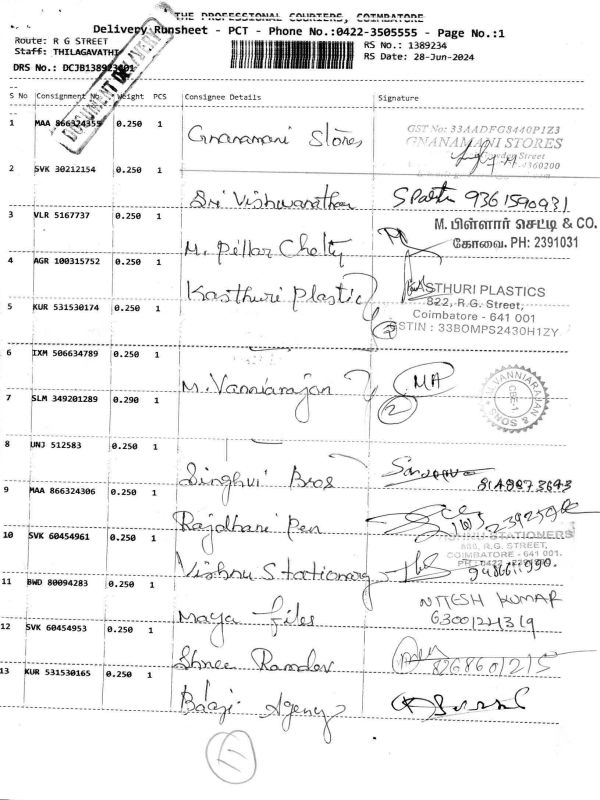 THE PROFESSIONAL COURIERS, COIMBATORE
Delivery Runsheet - PCT - Phone No.:0422-3505555 - Page No.:1
Route: R G STREET
Staff: THILAGAVATHI
RS No.: 1389234
RS Date: 28-Jun-2024
DRS No.: DCJB1389234
DOCUMENT DELIVERY
S No Consignment No. Weight PCS Consignee Details Signature
1 MAA 866324355 0.250 1 Gnanamani Stores
GST No: 33AADFG8440P1Z3
GNANAMANI STORES
Street
4360200
2 SVK 30212154 0.250 1 Sri Vishwanathan 9361590931
3 VLR 5167737 0.250 1 M. Pillar Chetty
M. பிள்ளார் செட்டி & CO.
கோவை. PH: 2391031
4 AGR 100315752 0.250 1 Kasthuri Plastic
KASTHURI PLASTICS
822, R.G. Street,
Coimbatore - 641 001
GSTIN : 33BOMPS2430H1ZY
5 KUR 531530174 0.250 1
2
6 IXM 506634789 0.250 1 M. Vanniarajan MA
2
VANNIARAJAN & SONS
CBE-1
7 SLM 349201289 0.290 1
8 UNJ 512583 0.250 1 Singhvi Bros
9 MAA 866324306 0.250 1 Rajdhani Pen
10 SVK 60454961 0.250 1 Vishnu Stationary
STATIONERS
R.G. STREET,
COIMBATORE - 641 001.
11 BWD 80094283 0.250 1 Maya Files NITESH KUMAR
12 SVK 60454953 0.250 1 Shree Ramdev 8268601215
13 KUR 531530165 0.250 1 Balaji Agency